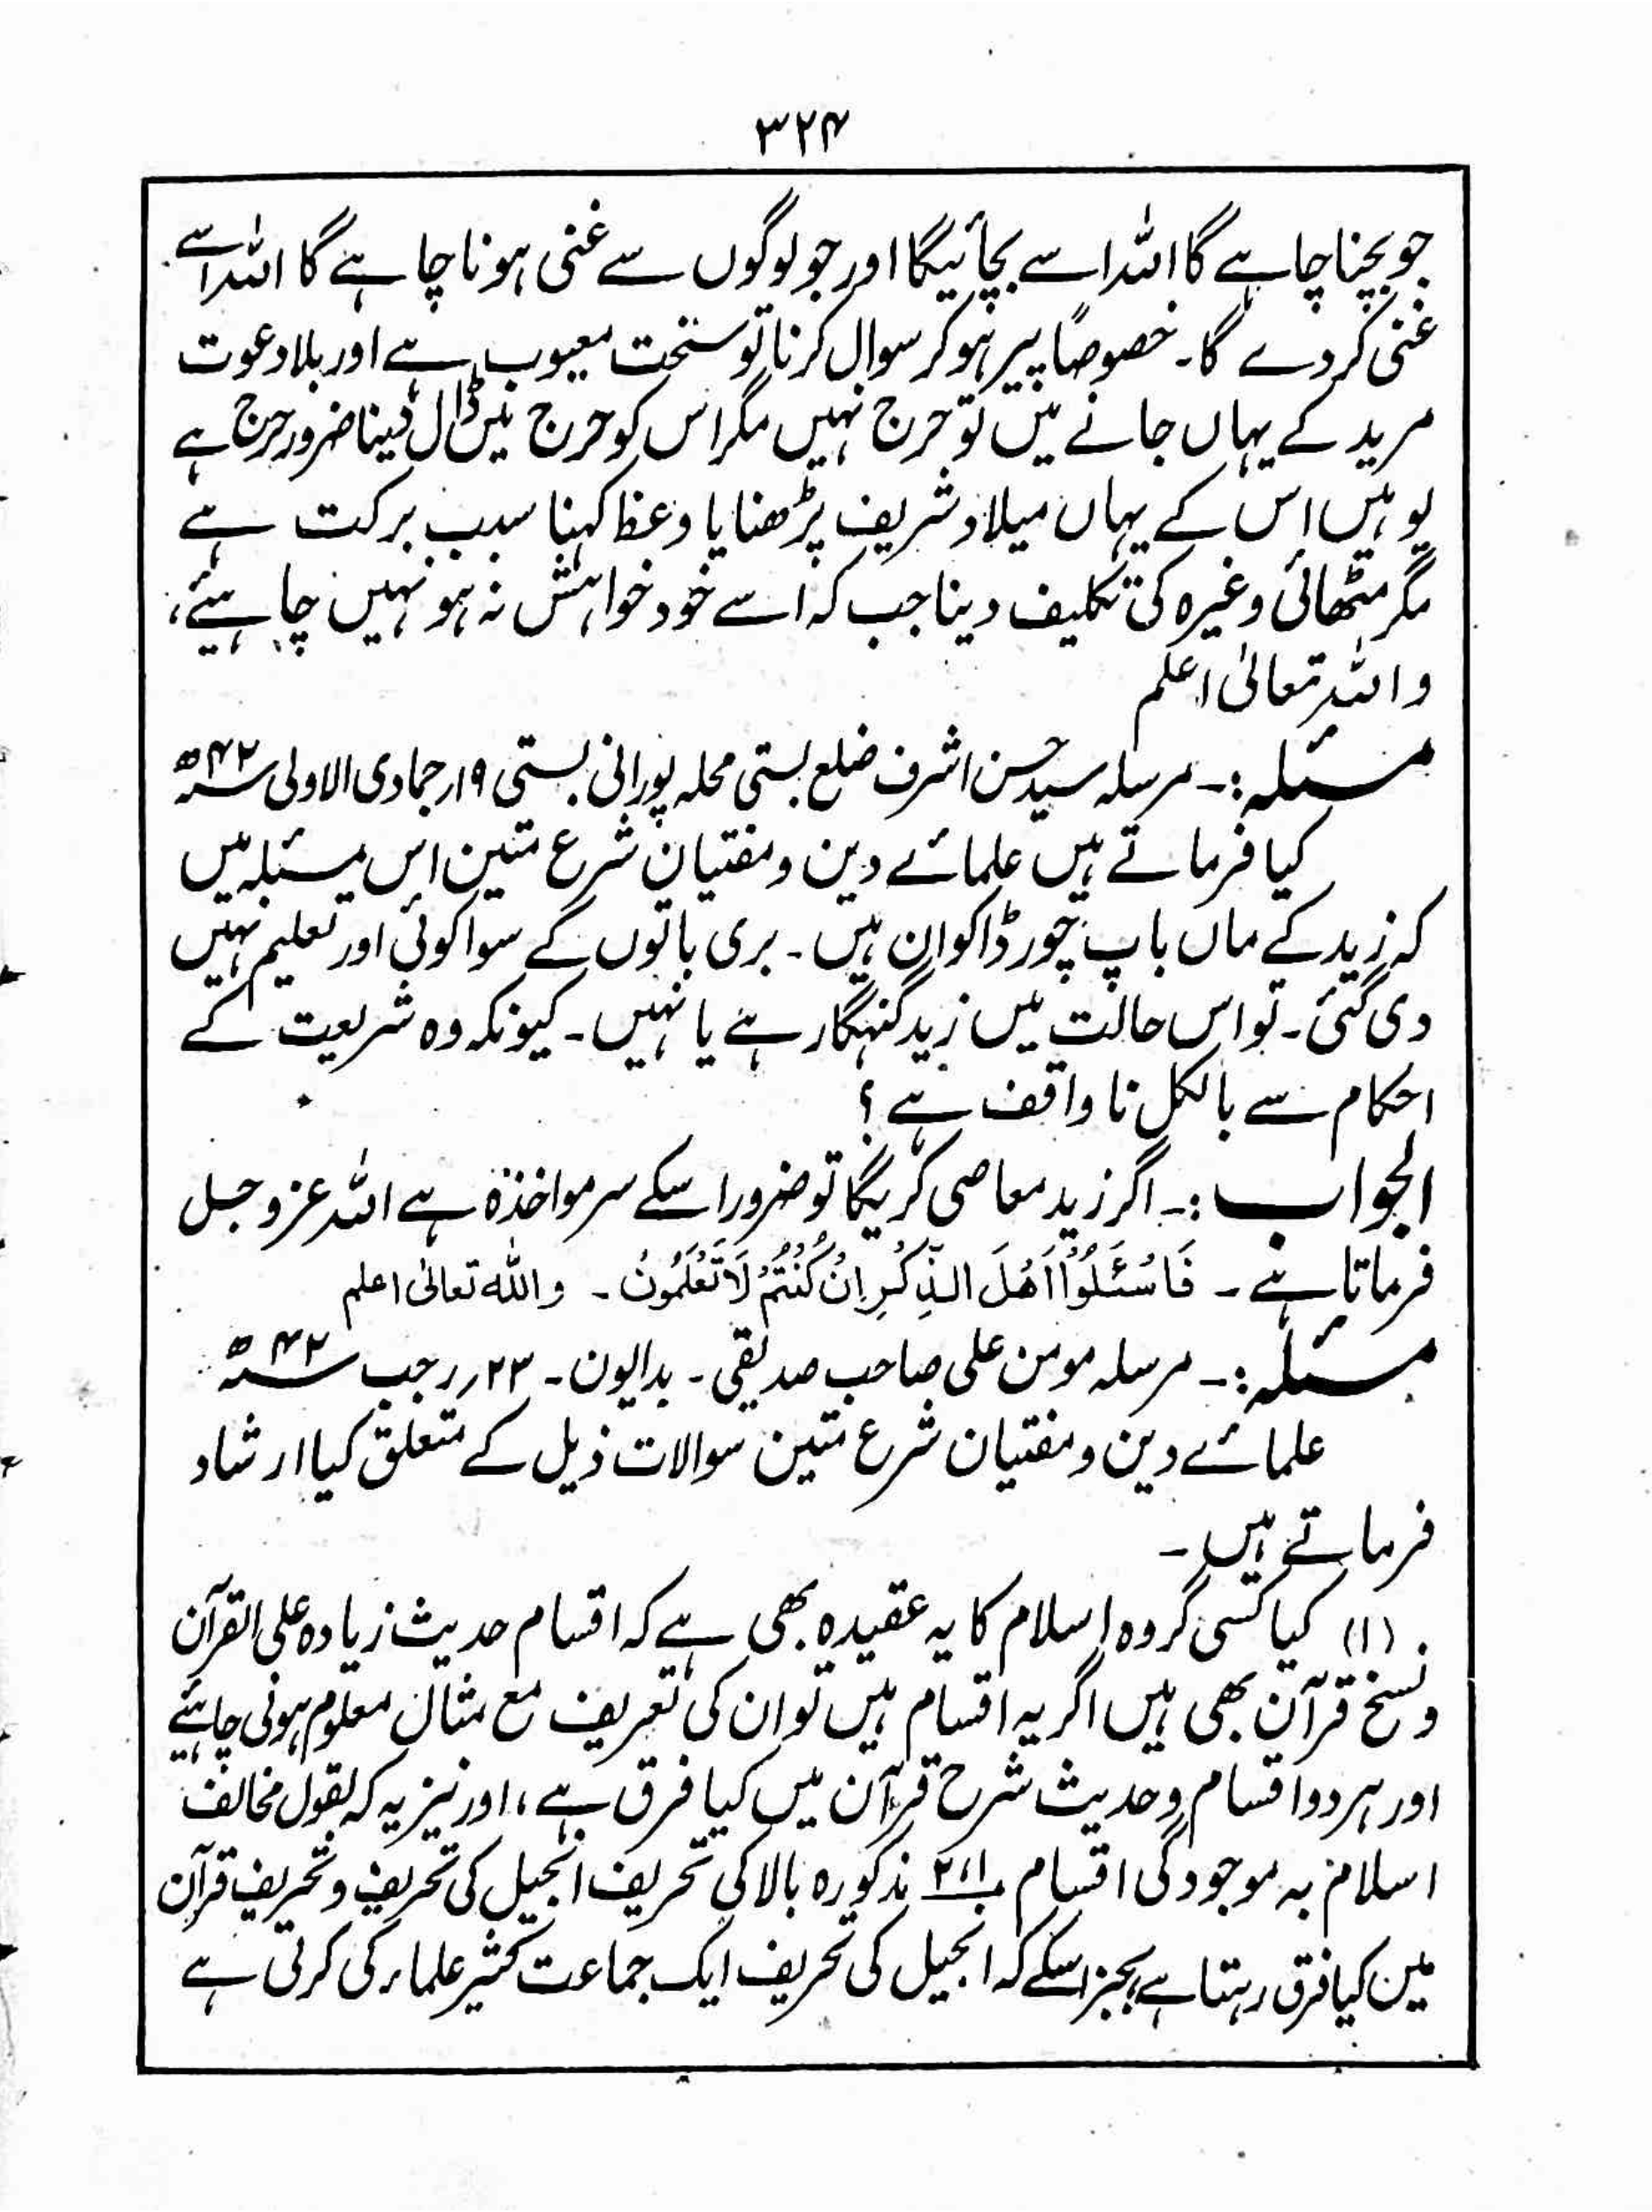 ۳۲۴
جو بچنا چاہے گا اللہ اسے بچائیگا اور جو لوگوں سے غنی ہونا چاہے گا اللہ اسے
غنی کر دے گا۔ خصوصاً پیر ہو کر سوال کرنا تو سخت معیوب ہے اور بلا دعوت
مرید کے یہاں جانے میں تو حرج نہیں مگر اس کو حرج میں ڈال دینا ضرور حرج ہے
یوہیں اس کے یہاں میلاد شریف پڑھنا یا وعظ کہنا سبب برکت ہے
مگر مٹھائی وغیرہ کی تکلیف دینا جب کہ اسے خود خواہش نہ ہو نہیں چاہیئے،
واللہ تعالیٰ اعلم
مسئلہ:۔ مرسلہ سید حسن اشرف ضلع بستی محلہ پورانی بستی ۱۹؍ جمادی الاولی سنہ ۴۲ھ
کیا فرماتے ہیں علمائے دین و مفتیان شرع متین اس مسئلہ میں
کہ زید کے ماں باپ چور ڈاکو ان ہیں۔ بری باتوں کے سوا کوئی اور تعلیم نہیں
دی گئی۔ تو اس حالت میں زید گنہگار ہے یا نہیں۔ کیونکہ وہ شریعت کے
احکام سے بالکل ناواقف ہے؟
الجواب:۔ اگر زید معاصی کریگا تو ضرور اسکے سر مواخذہ ہے اللہ عزوجل
فرماتا ہے۔ فَاسْئَلُوْا اَهْلَ الذِّكْرِ اِنْ كُنْتُمْ لَا تَعْلَمُوْنَ۔ واللہ تعالیٰ اعلم
مسئلہ:۔ مرسلہ مومن علی صاحب صدیقی۔ بدایون۔ ۲۳؍ رجب سنہ ۴۲ھ
علمائے دین و مفتیان شرع متین سوالات ذیل کے متعلق کیا ارشاد
فرماتے ہیں۔
(۱) کیا کسی گروہ اسلام کا یہ عقیدہ بھی ہے کہ اقسام حدیث زیادہ علی القرآن
و نسخ قرآن بھی ہیں اگر یہ اقسام ہیں تو ان کی تعریف مع مثال معلوم ہونی چاہئے
اور ہر دو اقسام و حدیث شرح قرآن میں کیا فرق ہے، اور نیز یہ کہ بقول مخالف
اسلام بہ موجودگی اقسام ۲،۱ مذکورہ بالا کی تحریف انجیل کی تحریف و تحریف قرآن
میں کیا فرق رہتا ہے بجز اسکے کہ انجیل کی تحریف ایک جماعت کثیر علماء کی کرتی ہے